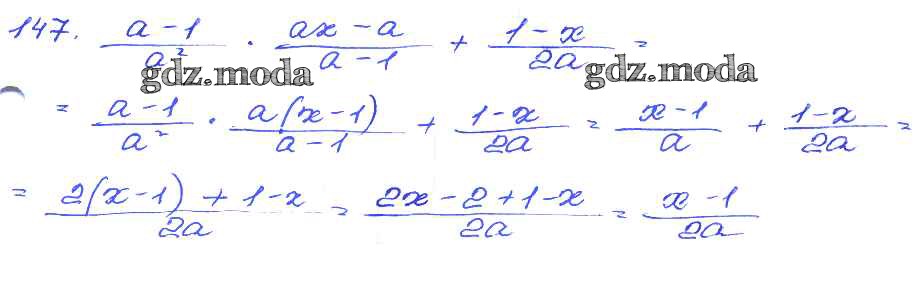 147. (a-1)/a² · (ax-a)/(a-1) + (1-x)/2a =
gdz.moda gdz.moda
= (a-1)/a² · a(x-1)/(a-1) + (1-x)/2a = (x-1)/a + (1-x)/2a =
= (2(x-1)+1-x)/2a = (2x-2+1-x)/2a = (x-1)/2a